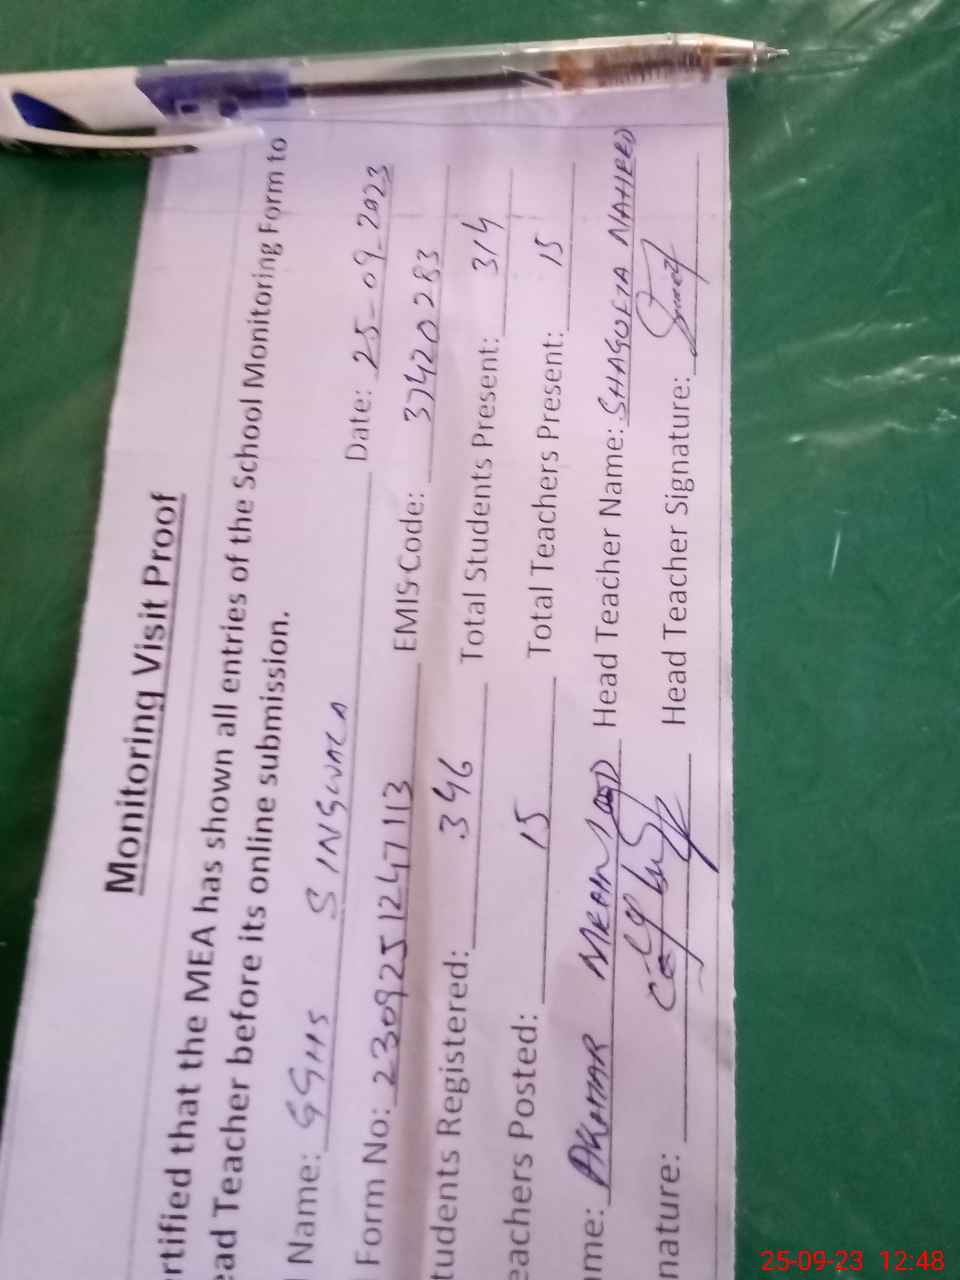 Monitoring Visit Proof
rtified that the MEA has shown all entries of the School Monitoring Form to
ead Teacher before its online submission.
Name: GGHS SINGWALA Date: 25-09-2023
Form No: 2309251247113 EMIS Code: 37420283
tudents Registered: 346 Total Students Present: 314
eachers Posted: 15 Total Teachers Present: 15
me: AKHTAR Head Teacher Name: SHAGUFTA NAHEED
nature: Head Teacher Signature:
25-09-23 12:48